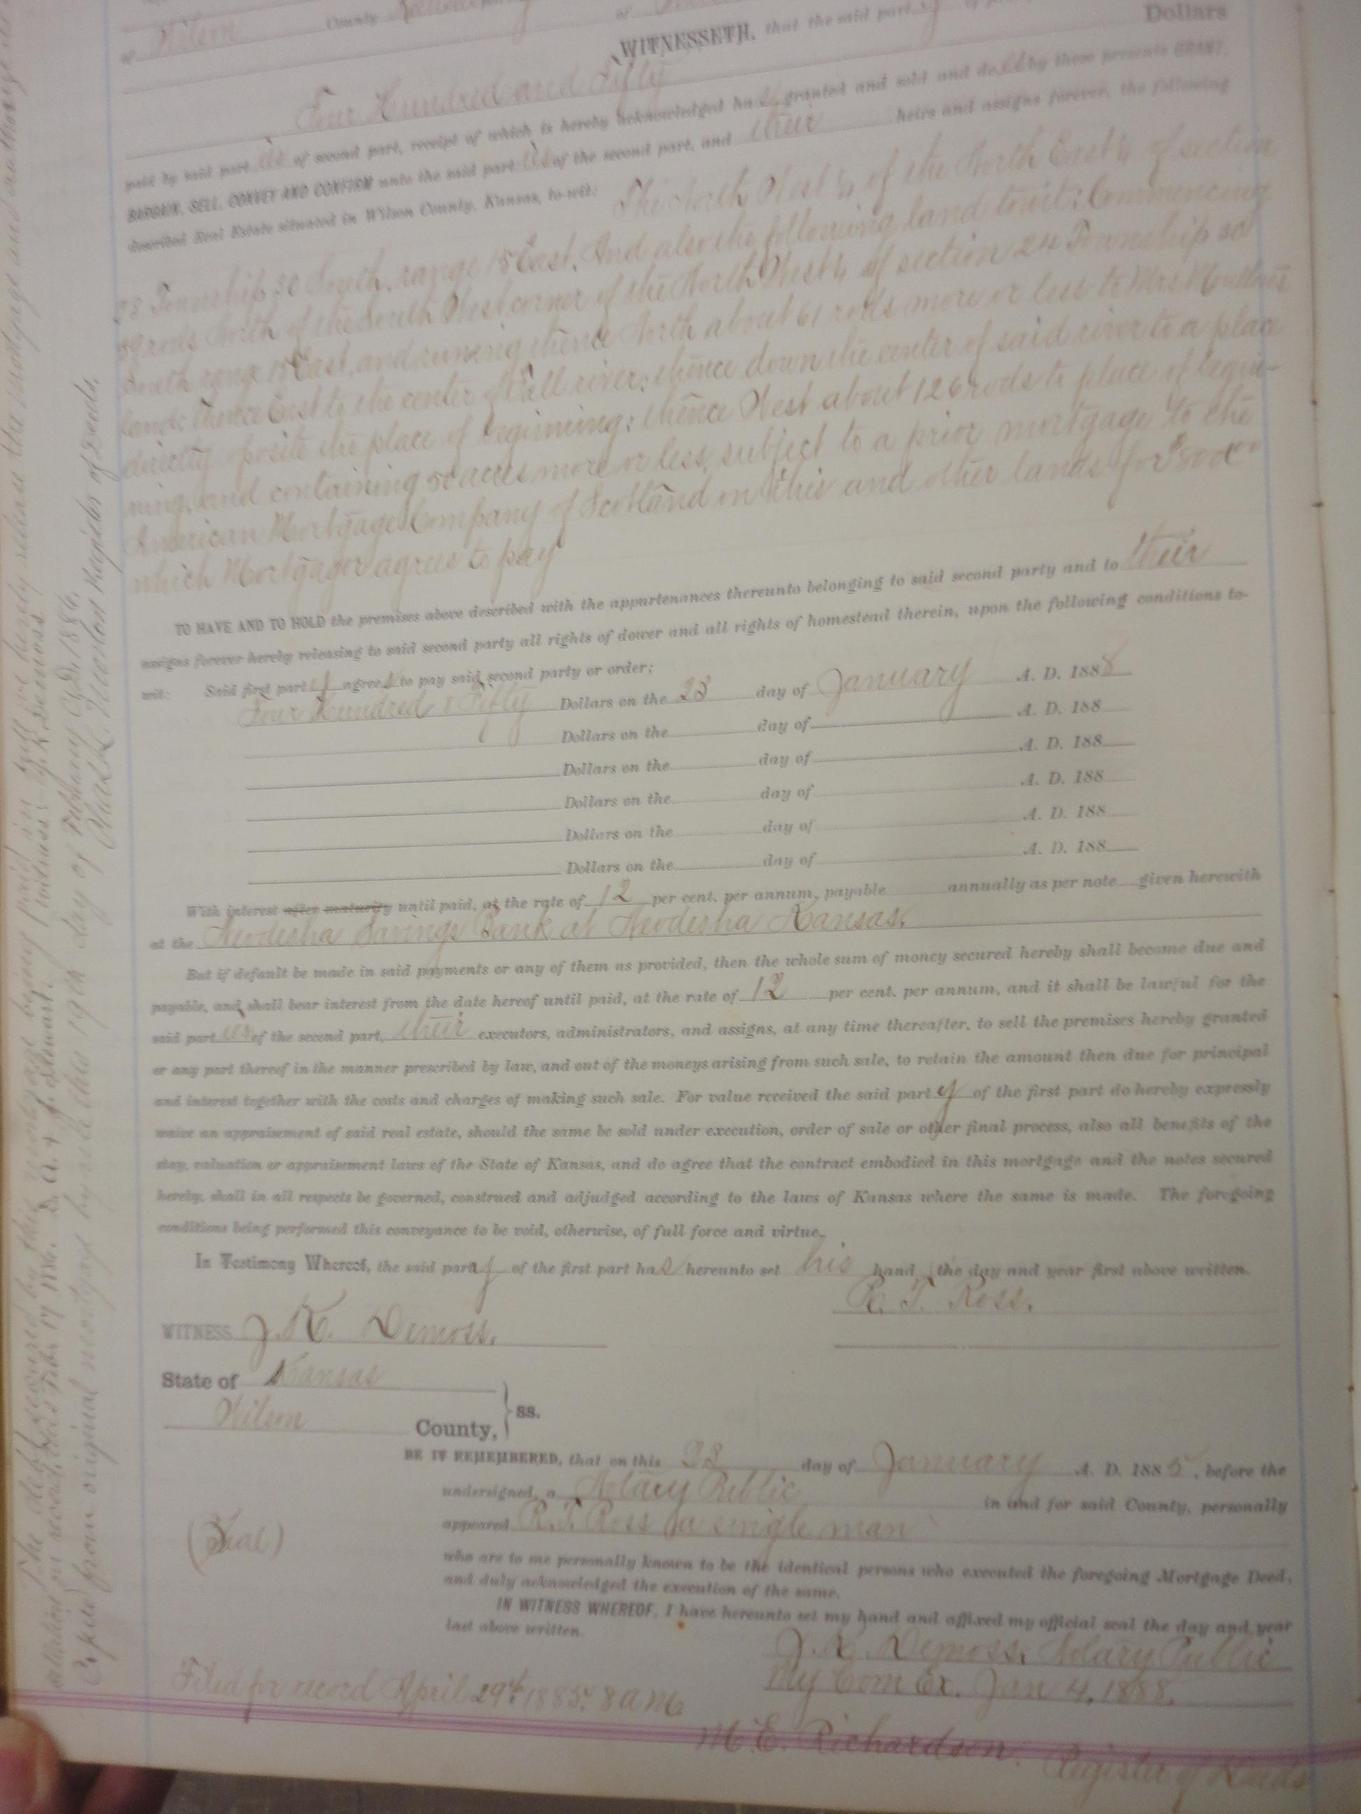 of Wilson County Kansas of
WITNESSETH, that the said party of
Four Hundred and Fifty Dollars
paid by said parties of second part, receipt of which is hereby acknowledged has granted and sold and does by these presents GRANT,
BARGAIN, SELL, CONVEY AND CONFIRM unto the said parties of the second part, and their heirs and assigns forever, the following
described Real Estate situated in Wilson County, Kansas, to-wit: The North West ¼ of the North East ¼ of section
23 Township 30 South, range 15 East. And also the following land to wit: Commencing
rods North of the South West corner of the North West ¼ of section 24 Township 30
South range 15 East, and runing thence North about 61 rods more or less to Mrs
land: thence East to the center of Fall river: thence down the center of said river to a place
directly oposite the place of beginning: thence West about 126 rods to place of begin-
ning, and containing 50 acres more or less, subject to a prior mortgage to the
American Mortgage Company of Scotland on this and other lands for
which Mortgagor agrees to pay
TO HAVE AND TO HOLD the premises above described with the appurtenances thereunto belonging to said second party and to their
assigns forever hereby releasing to said second party all rights of dower and all rights of homestead therein, upon the following conditions to-
wit: Said first party agrees to pay said second party or order:
Four Hundred & Fifty Dollars on the 23 day of January A. D. 1888
Dollars on the day of A. D. 188
Dollars on the day of A. D. 188
Dollars on the day of A. D. 188
Dollars on the day of A. D. 188
Dollars on the day of A. D. 188
With interest after maturity until paid, at the rate of 12 per cent. per annum, payable annually as per note given herewith
at the Neodesha Savings Bank at Neodesha Kansas.
But if default be made in said payments or any of them as provided, then the whole sum of money secured hereby shall become due and
payable, and shall bear interest from the date hereof until paid, at the rate of 12 per cent. per annum, and it shall be lawful for the
said parties of the second part, their executors, administrators, and assigns, at any time thereafter, to sell the premises hereby granted
or any part thereof in the manner prescribed by law, and out of the moneys arising from such sale, to retain the amount then due for principal
and interest together with the costs and charges of making such sale. For value received the said party of the first part do hereby expressly
waive an appraisement of said real estate, should the same be sold under execution, order of sale or other final process, also all benefits of the
stay, valuation or appraisement laws of the State of Kansas, and do agree that the contract embodied in this mortgage and the notes secured
hereby, shall in all respects be governed, construed and adjudged according to the laws of Kansas where the same is made. The foregoing
conditions being performed this conveyance to be void, otherwise, of full force and virtue.
In Testimony Whereof, the said party of the first part has hereunto set his hand the day and year first above written.
R. T. Ross.
WITNESS J. K. Demoss.
State of Kansas
Wilson County, } ss.
BE IT REMEMBERED, that on this 23 day of January A. D. 1885, before the
undersigned, a Notary Public in and for said County, personally
appeared R. T. Ross (a single man
who are to me personally known to be the identical persons who executed the foregoing Mortgage Deed,
and duly acknowledged the execution of the same.
(Seal)
IN WITNESS WHEREOF, I have hereunto set my hand and affixed my official seal the day and year
last above written.
J. K. Demoss, Notary Public
My Com Ex. Jan 4, 1888.
Filed for record April 29th 1885. 8 a m.
M. E. Richardson. Register of Deeds
The debt secured by this mortgage having been paid in full we hereby release the mortgage and authorize
witness J. K. Demoss
Copied from original mortgage by me this 19th day of February A.D. 1886.
Register of Deeds.